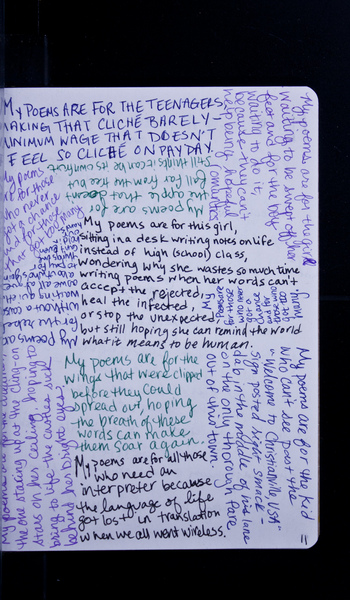 MY POEMS ARE FOR THE TEENAGERS
MAKING THAT CLICHÉ BARELY-
MINIMUM WAGE THAT DOESN'T
FEEL SO CLICHE ON PAYDAY.
My poems are for
the apple that doesn't
fall far from the tree but
still thinks it can be its own fruit
My poems are for this girl,
sitting in a desk writing notes on life
instead of high (school) class,
wondering why she wastes so much time
writing poems when her words can't
accept the rejected,
heal the infected,
or stop the unexpected,
but still hoping she can remind the world
what it means to be human.
My poems are for the
wings that were clipped
before they could
spread out, hoping
the breath of these
words can make
them soar again.
My poems are for all those
who need an
interpreter because
the language of life
got lost in translation
when we all went wireless.
My poems are for the girl
waiting to be swept off her
feet and for the boy
waiting to do it,
because they can't
help being hopeful
romantics
My poems are for the kid
who can't see past the
"Welcome to Christianville, USA"
sign posted right smack-
dab in the middle of his lane
of the only thoroughfare
out of this town.
My poems
are for those
who never
got a chance
My poems are for the
without a cause
the one staring up at the cling-on
stars on her ceiling, hoping to
bring to life the
behind her bright eyes.